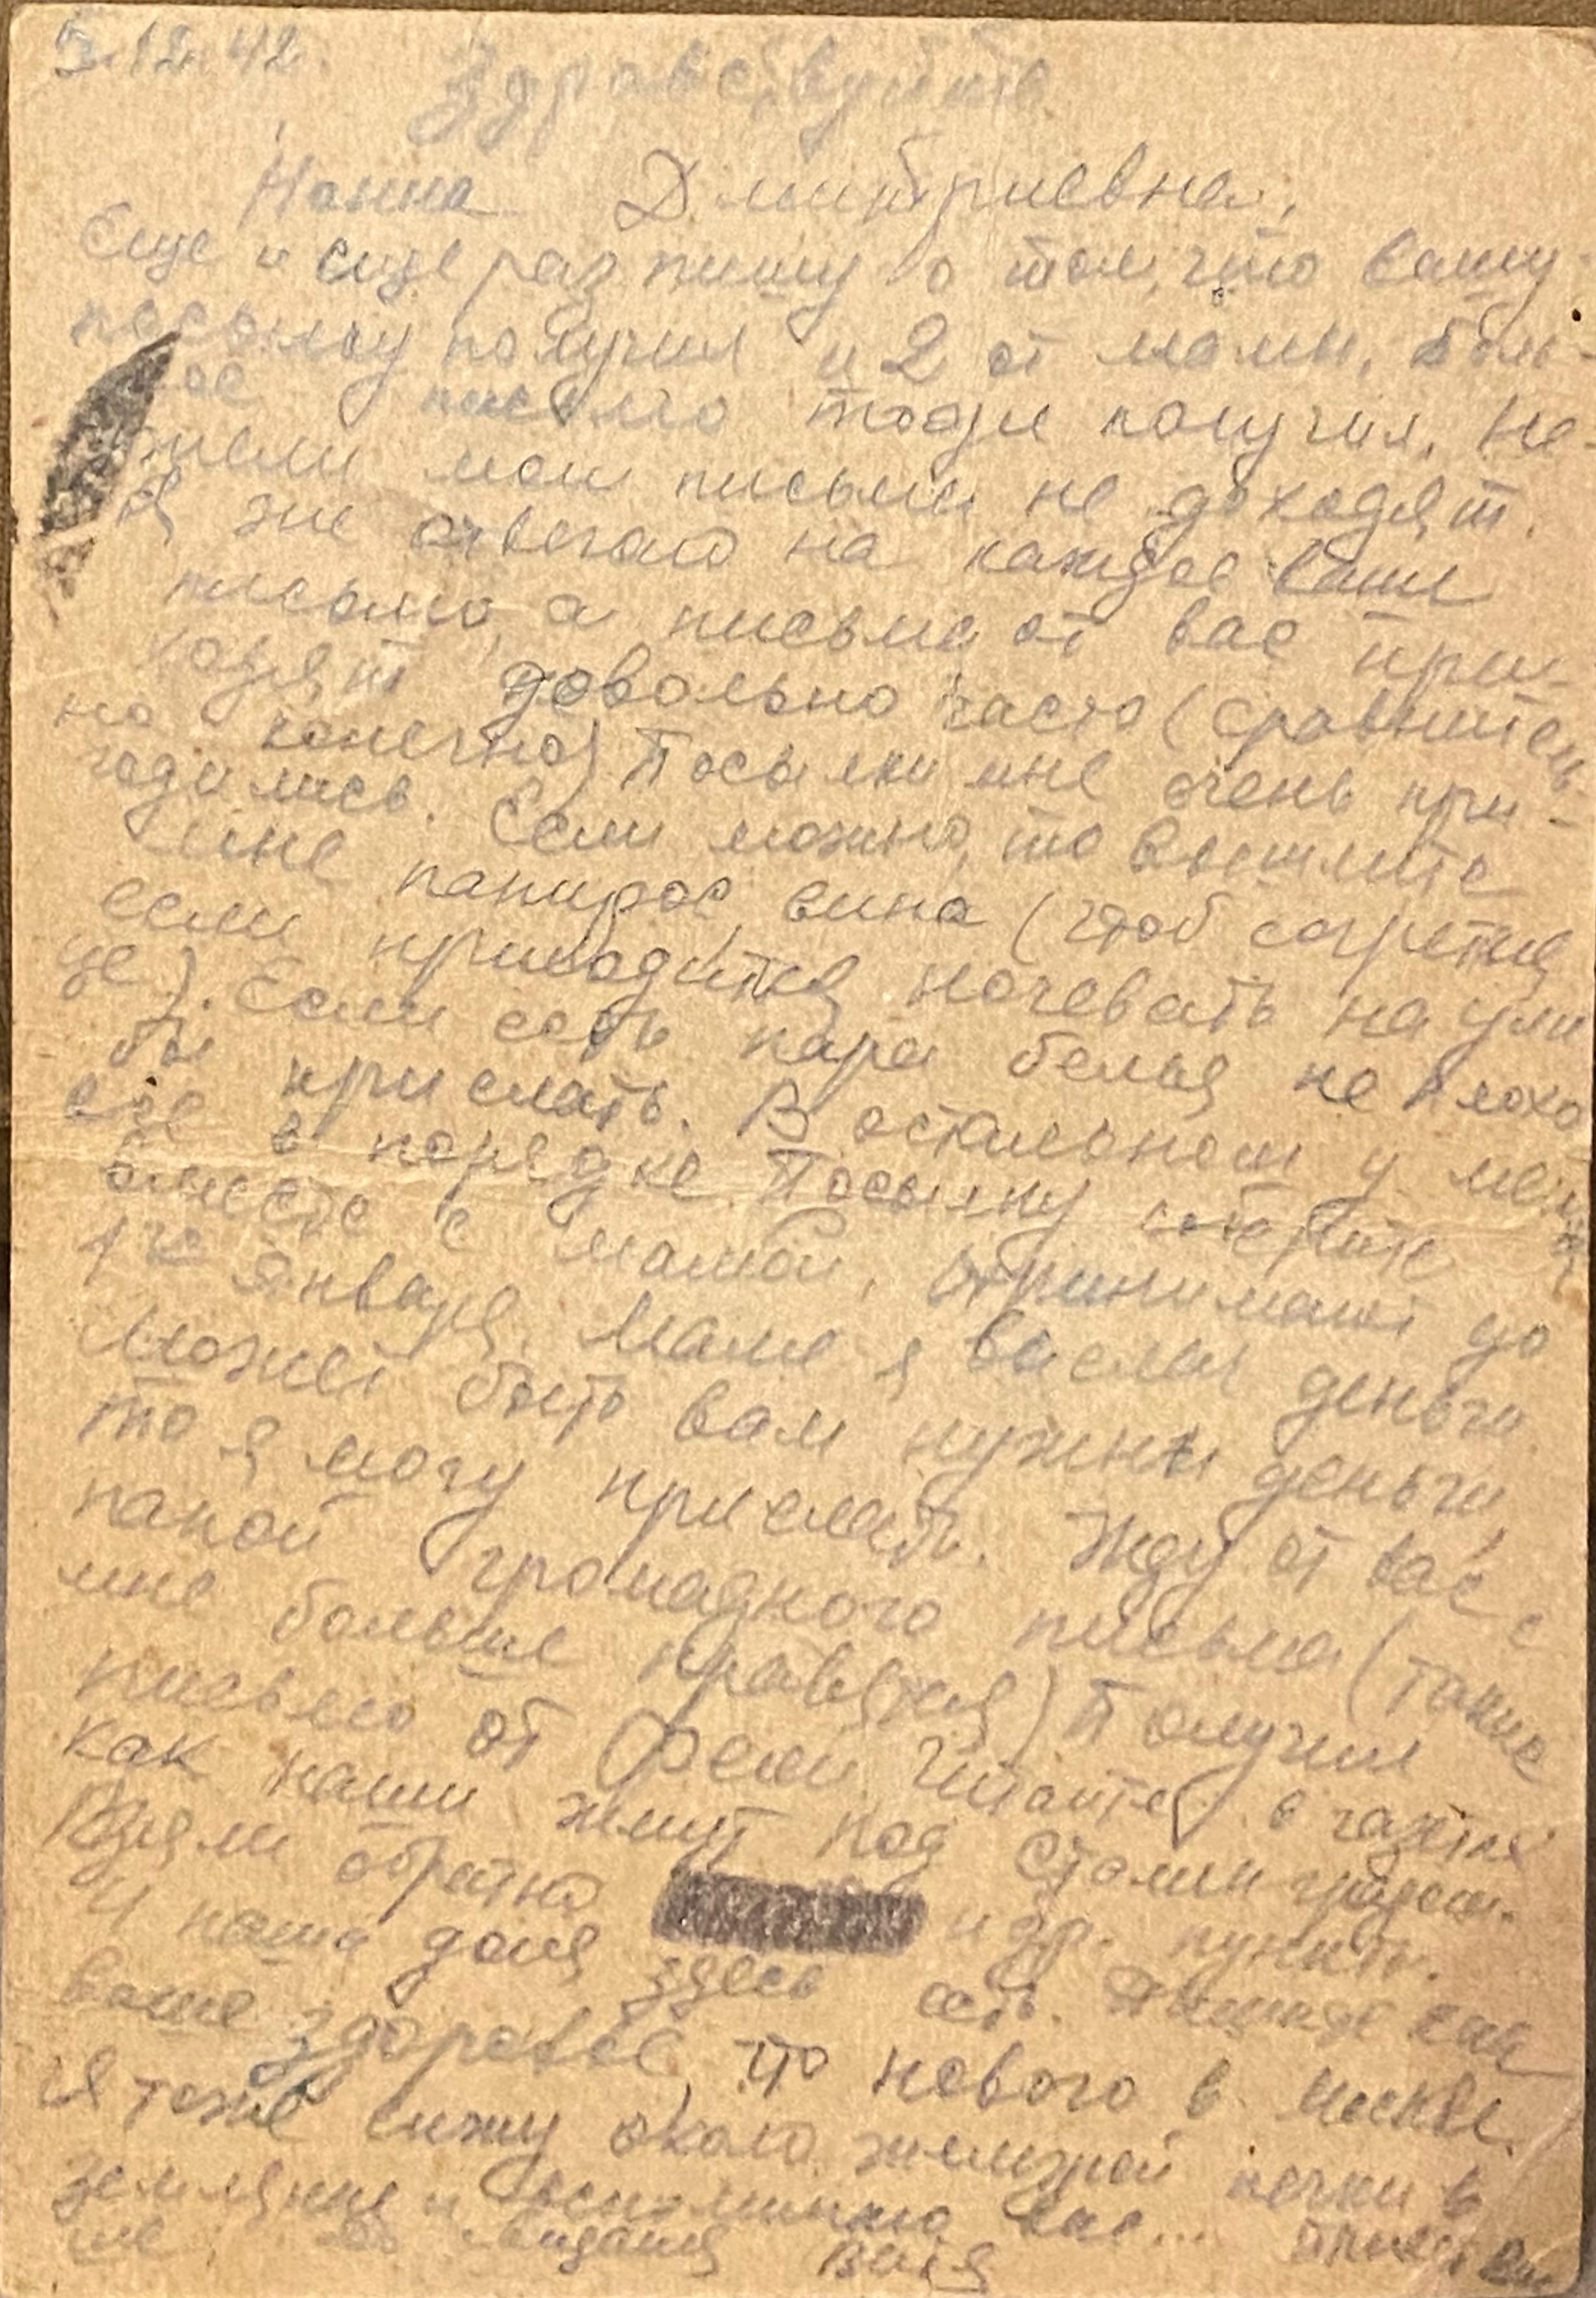 5.12.42.
Здравствуйте
Нонна Дмитриевна,
Еще и еще раз пишу о том, что вашу
посылку получил и 2 от мамы, боль-
шое письмо тоже получил. Не-
ужели мои письма не доходят.
Я же отвечаю на каждое ваше
письмо, а письма от вас при-
ходят довольно часто (сравнитель-
но конечно) Посылки мне очень при-
годились. Если можно, то вышлите
мне папирос, вина (чтоб согреться
если приходится ночевать на ули
це). Если есть пара белья не плохо
бы прислать. В остальном у меня
все в порядке. Посылку
вместе с мамой, принимают до
1го января. Маме я выслал деньги
Может быть вам нужны деньги,
то я могу прислать. Жду от вас с
папой громадного письма (такие
мне больше нравятся) Получил
письмо от Фели. Читайте в газетах
как наши жмут под Сталинградом.
Взяли обратно и др. пункты.
И наша доля здесь есть. Пишите как
ваше здоровье, что нового в Москве.
Я тоже сижу около железной печки в
землянке и вспоминаю вас... Привет
до свидания Витя